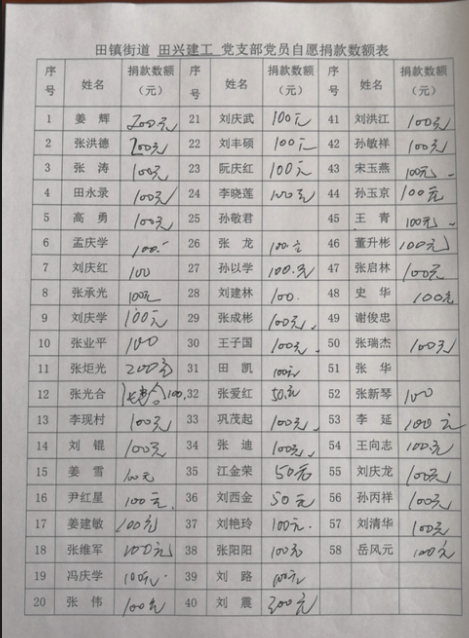 田镇街道 田兴建工 党支部党员自愿捐款数额表
序号 姓名 捐款数额（元） 序号 姓名 捐款数额（元） 序号 姓名 捐款数额（元）
1 姜辉 200元 21 刘庆武 100元 41 刘洪江 100元
2 张洪德 200元 22 刘丰硕 100元 42 孙敏祥 100元
3 张涛 100元 23 阮庆红 100元 43 宋玉燕 100元
4 田永录 100元 24 李晓莲 100元 44 孙玉京 100元
5 高勇 100元 25 孙敬君 45 王青 100元
6 孟庆学 100. 26 张龙 100.元 46 董升彬 100元
7 刘庆红 100 27 孙以学 100.元 47 张启林 100元
8 张承光 100元 28 刘建林 100. 48 史华 100元
9 刘庆学 100元 29 张成彬 100元. 49 谢俊忠
10 张业平 100 30 王子国 100元. 50 张瑞杰 100元
11 张炬光 200元 31 田凯 100元 51 张华
12 张光合 100, 32 张爱红 50.元 52 张新琴 100
13 李现村 100元 33 巩茂起 100元. 53 李延 100元
14 刘锟 100元 34 张迪 100元. 54 王向志 100元.
15 姜雪 100元 35 江金荣 50元 55 刘庆龙 100元
16 尹红星 100元. 36 刘西金 50元 56 孙丙祥 100元
17 姜建敏 100元 37 刘艳玲 100元. 57 刘清华 100元
18 张维军 100元 38 张阳阳 100元 58 岳风元 100元
19 冯庆学 100元. 39 刘路 100元
20 张伟 100元 40 刘震 200元